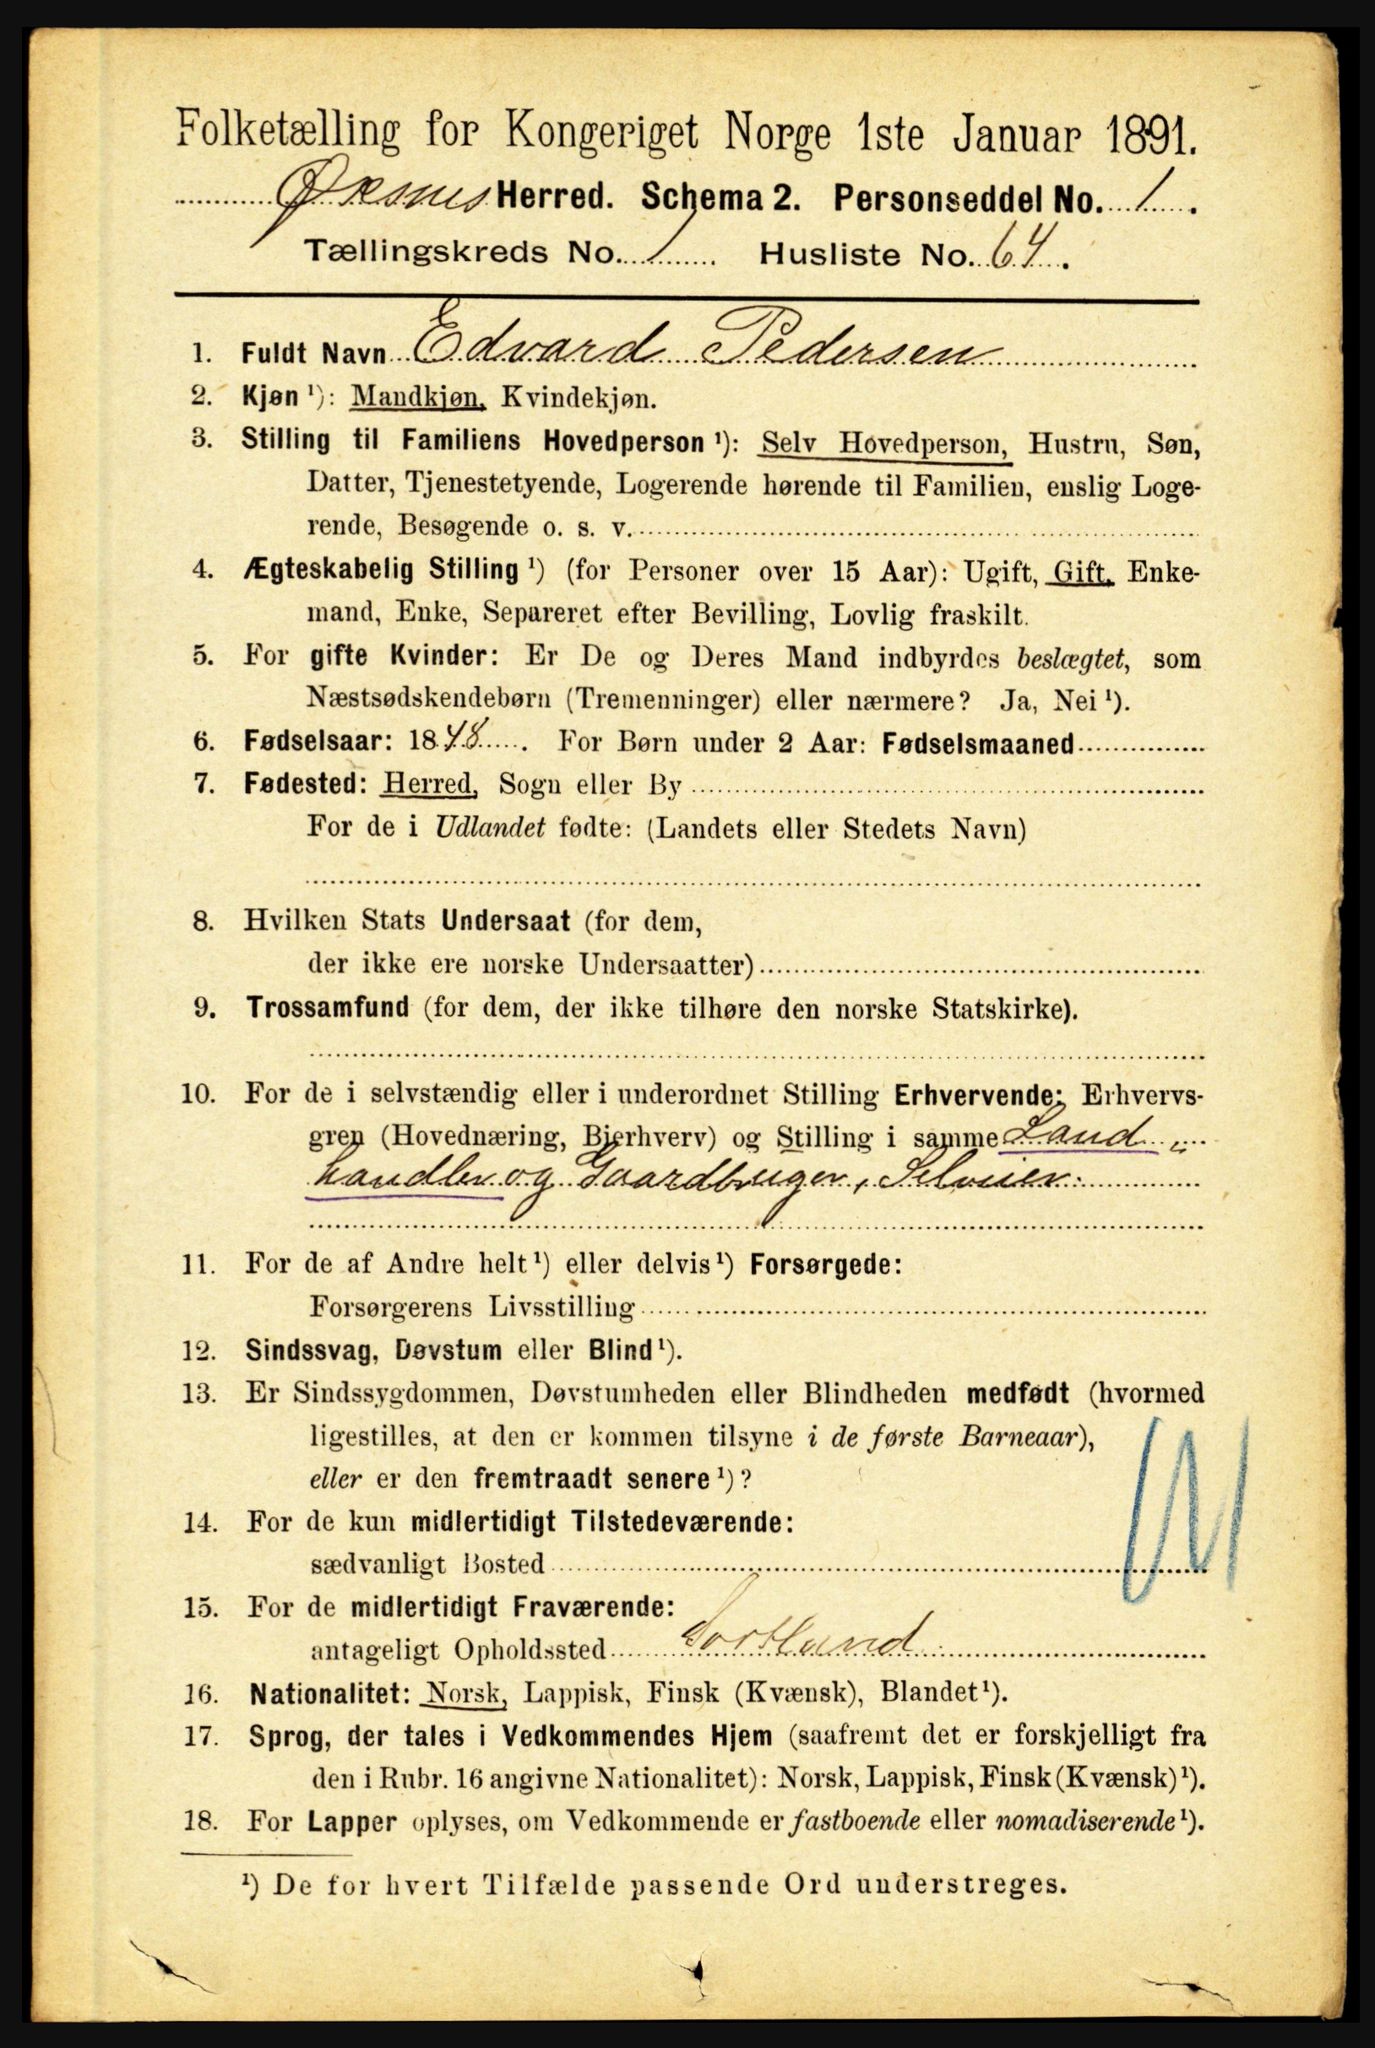 Folketælling for Kongeriget Norge 1ste Januar 1891.
Øxnes Herred. Schema 2. Personseddel No. 1.
Tællingskreds No. 1 Husliste No. 64.
1. Fuldt Navn Edvard Pedersen
2. Kjøn ¹): Mandkjøn, Kvindekjøn.
3. Stilling til Familiens Hovedperson ¹): Selv Hovedperson, Hustru, Søn,
Datter, Tjenestetyende, Logerende hørende til Familien, enslig Loge-
rende, Besøgende o. s. v.
4. Ægteskabelig Stilling ¹) (for Personer over 15 Aar): Ugift, Gift, Enke-
mand, Enke, Separeret efter Bevilling, Lovlig fraskilt.
5. For gifte Kvinder: Er De og Deres Mand indbyrdes beslægtet, som
Næstsødskendebørn (Tremenninger) eller nærmere? Ja, Nei ¹).
6. Fødselsaar: 1848. For Børn under 2 Aar: Fødselsmaaned
7. Fødested: Herred, Sogn eller By
For de i Udlandet fødte: (Landets eller Stedets Navn)
8. Hvilken Stats Undersaat (for dem,
der ikke ere norske Undersaatter)
9. Trossamfund (for dem, der ikke tilhøre den norske Statskirke).
10. For de i selvstændig eller i underordnet Stilling Erhvervende: Erhvervs-
gren (Hovednæring, Bierhverv) og Stilling i samme Land„
handler og Gaardbruger, Selveier
11. For de af Andre helt ¹) eller delvis ¹) Forsørgede:
Forsørgerens Livsstilling
12. Sindssvag, Døvstum eller Blind ¹).
13. Er Sindssygdommen, Døvstumheden eller Blindheden medfødt (hvormed
ligestilles, at den er kommen tilsyne i de første Barneaar),
eller er den fremtraadt senere ¹)?
14. For de kun midlertidigt Tilstedeværende:
sædvanligt Bosted
15. For de midlertidigt Fraværende:
antageligt Opholdssted Sortland
16. Nationalitet: Norsk, Lappisk, Finsk (Kvænsk), Blandet ¹).
17. Sprog, der tales i Vedkommendes Hjem (saafremt det er forskjelligt fra
den i Rubr. 16 angivne Nationalitet): Norsk, Lappisk, Finsk (Kvænsk) ¹).
18. For Lapper oplyses, om Vedkommende er fastboende eller nomadiserende ¹).
¹) De for hvert Tilfælde passende Ord understreges.